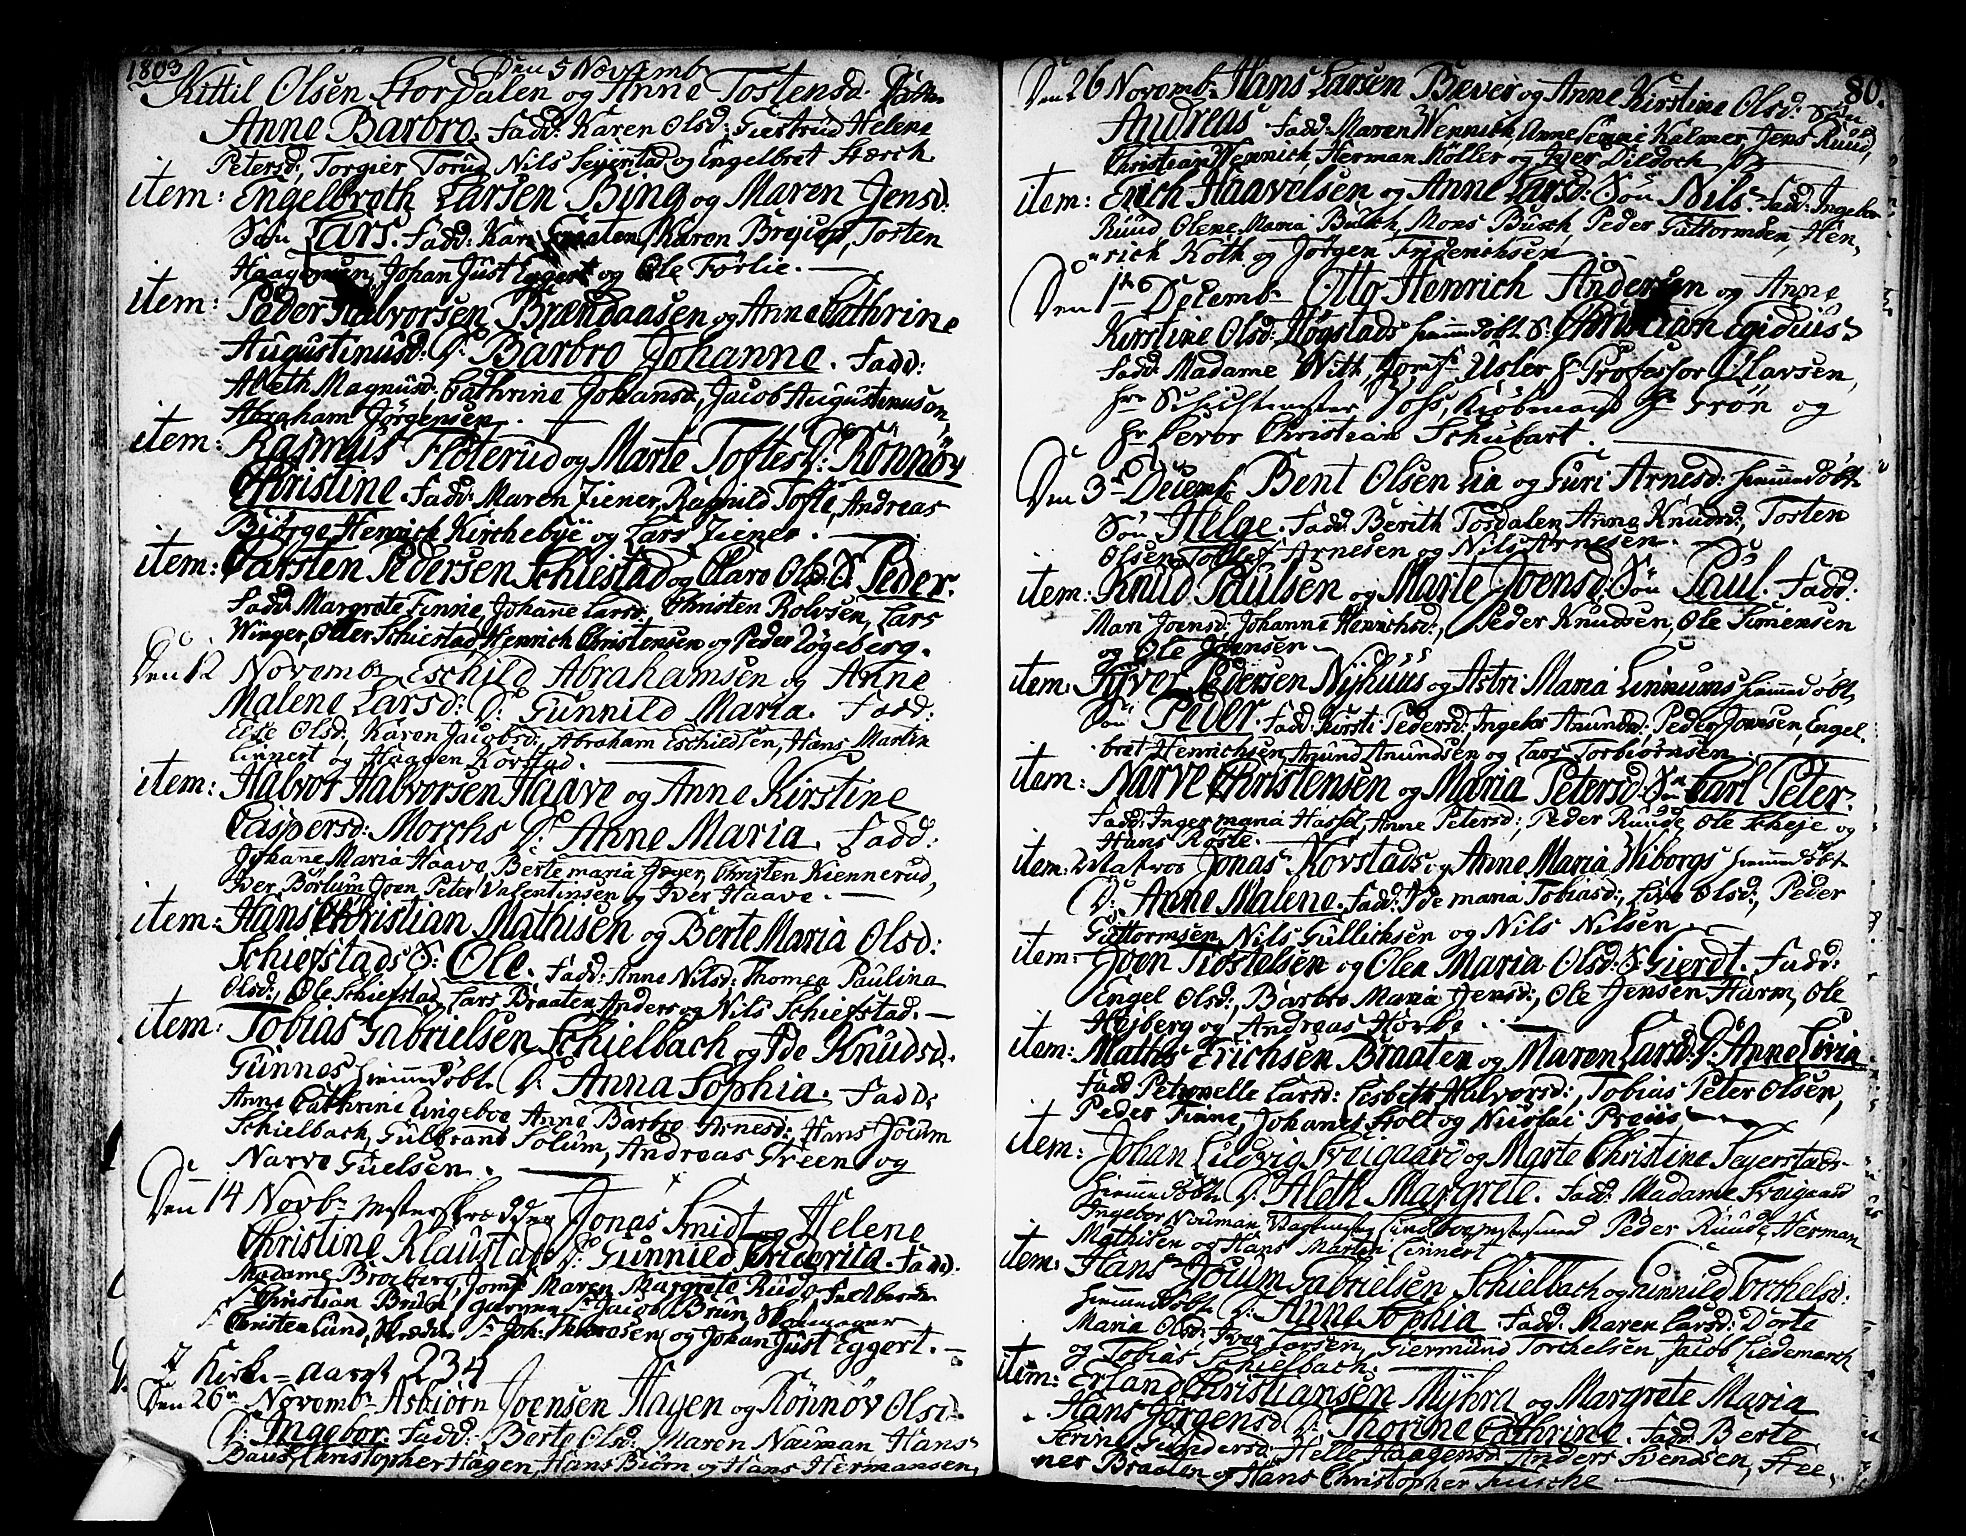 1803
Den 5 Novemb
Kittil Olsen Stordalen og Anne Tostensd:
Anne Barbro. Fadd: Karen Olsd: Giertrud Helene
Petersd:, Torgier Torud, Nils Sejerstad og Engelbret Stærch
item: Engelbreth Larsen Bing og Maren Jensd:
Søn Lars. Fadd: Kari Braaten, Karen Tosten
Haagensen, Johan Just Eggert og OleFørlie.
item: Peder Halvorsen Brændaasen og Anne Cathrine
Augustinusd: D: Barbro Johanne. Fadd:
Aleth Magnusd: Cathrine Johansd:, Jacob Augustinuson
Abraham Jørgensen.
item: Rasmus Floterud og Marte Toftes D: Rønnøv
Christine. Fadd: Maren Ziener, Ragnild Tofte, Andreas
Biørge, Henrich Kirchebye og Lars Ziener.
item: Carsten Pedersen Schiestad og Clare Olsd: S: Peder.
Fadd: Margrete Finne, Johanne Larsd: Christen Rolvsen, Lars
Winger, Otter Schiestad, Henrich Christensen og Peder Løgeberg.
Den 12 Novemb Eschild Abrahamsen og Anne
Malene Larsd: D: Gunnild Maria. Fadd:
Else Olsd: Karen Jacobsd:, Abraham Eschildsen, Hans Martin
Linnert og Haagen Korstad.
item: Halvor Halvorsen Haave og Anne Kirstine
Caspersd: Morchs D: Anne Maria. Fadd:
Johanne Maria Haave, Bertemaria Jæger, Christen Kiennerud,
Iver Børlum, Joen Peter Valentinsen og Iver Haave.
item: Hans Christian Mathisen og Berte Maria Olsd:
Schiefstads S: Ole. Fadd: Anne Nilsd: Thomea Paulina
Olsd:, Ole Schiefstad, Lars Braaten, Anders og Nils Schiefstad.
item: Tobias Gabrielsen Schielbach og Ide Knudsd.
Gunnes hiemmedøbt D: Anna Sophia. Fadd:
Anne Cathrine Lingeboe, Anne Barbro Arnesd: Hans Jocum
Schielbach, Gulbrand Solum, Andreas Green og
Narve Guelsen.
Den 14 Novb Mesterskrædder Jonas Smidt og Helene
Christine Klaustads D: Gunnild Friderica. Fadd:
Madame Broeberg, Jomf Maren Margrete Rudo, Feldbereder
Sr Christian Garver Sr Jacob Bruun,
Christen Lund, Skræder Sr Joh: og Johan Just Eggert.
Kirke-aaret 234
Den 26 Novemb Asbiørn Joensen Hagen og Rønnøv Olsd:
D: Ingebor. Fadd: Berte Olsd: Maren Nauman Hans
Baus, Christopher Hagen, Hans Biørn og Hans Hermansen,
80.
Den 26 Novemb Hans Larsen Bæver og Anne Kirstine Olsd: Søn
Andreas. Fadd: Maren Wennich, Anne Kalmer, Jens Ruud,
Christian Wennich, Herman Møller og Iver Dildoch
item: Erich Haavelsen og Anne Larsd: Søn Nils. Fadd: Ingebor
Ruud Olene Maria Busch, Mons Busch, Peder Guttormsen, Hen-
rich Koth og Jørgen Friderichsen
Den 1te Decemb Otto Henrich Andersen og Anne
Kirstine Olsd: Høgstads hiemmedøbt S: Christian Egidius.
Fadd: Madame With, Jomf Usler, Hr Professor Olavsen,
Hr Joss, Kiøbmand Hr Grøn og
Hr Levor Christian Schubart.
Den 3die Decemb Bent Olsen Lia og Guri Arnesd: hiemmedøbt
Søn Helge. Fadd: Berith Tosdalen, Anne Knudsd:, Tosten
Olsen, Tollef Arnesen og Nils Arnesen.
item: Knud Paulsen og Marte Joensd: Søn Paul. Fadd:
Mari Joensd: Johanne Henrichsd:, Peder Knudsen, Ole Simensen
og Ole Joensen
item: Syver Pedersen Nyhuus og Astri Maria Linnums hiemmedøbt
Søn Peder. Fadd: Kirsti Pedersd: Ingebor Amundsd: Peder Joensen, Engel-
bret Henrichsen, Amund Amundsen og Lars Torbiørnsen
item: Narve Christensen og Maria Petersd: Søn Carl Peter.
Fadd: Inger maria Hassel, Anne Petersd:, Peder Ruude, Ole Skeje og
Hans Røste.
item: Matros Jonas Kovstads og Anne Maria Wiborgs hiemmedøbt
D: Anne Malene. Fadd: Ide maria Tobiasd:, Live Olsd:, Peder
Guttormsen, Nils Gullichsen og Nils Nilsen
item: Joen Kiostelsen og Olea Maria Olsd: S: Gierdt. Fadd:
Engel Olsd:, Barbro Maria Jensd:, Ole Jensen Harm, Ole
Hejberg og Andreas Horke.
item: Mathis Erichsen Braaten og Maren Larsd: D: Anne Livia
Fadd: Petronelle Larsd: Lisbeth Halvorsd:, Tobias Peter Olsen,
Peder Finne, Johannes Holt og Nicolai Preus.
item: Johan Ludvig Svaigaard og Marte Christine Sejerstads
hiemmedøbt D: Aleth Margrete. Fadd: Madame Svaigaard
Ingebor Nauman, Peder Ruude, Herman
Mathisen og Hans Martin Linnert
item: Hans Jocum Gabrielsen Schielbach og Gunnild Torchelsd:
hiemmedøbt D: Anne Sophia. Fadd: Maren Larsd: Dorte
Maria Olsd: Iver Larsen, Giermund Torchelsen, Jacob Liedemarch
og Tobias Schielbach.
item: Erland Christiansen Myhra og Margrete Maria
Hans Jørgensd: D: Thorine Cathrine. Fadd: Berte
Serine Gundersd: Helle Haagensd: Anders Svendsen, Hee-
ner Braaten og Hans Christopher Fusche